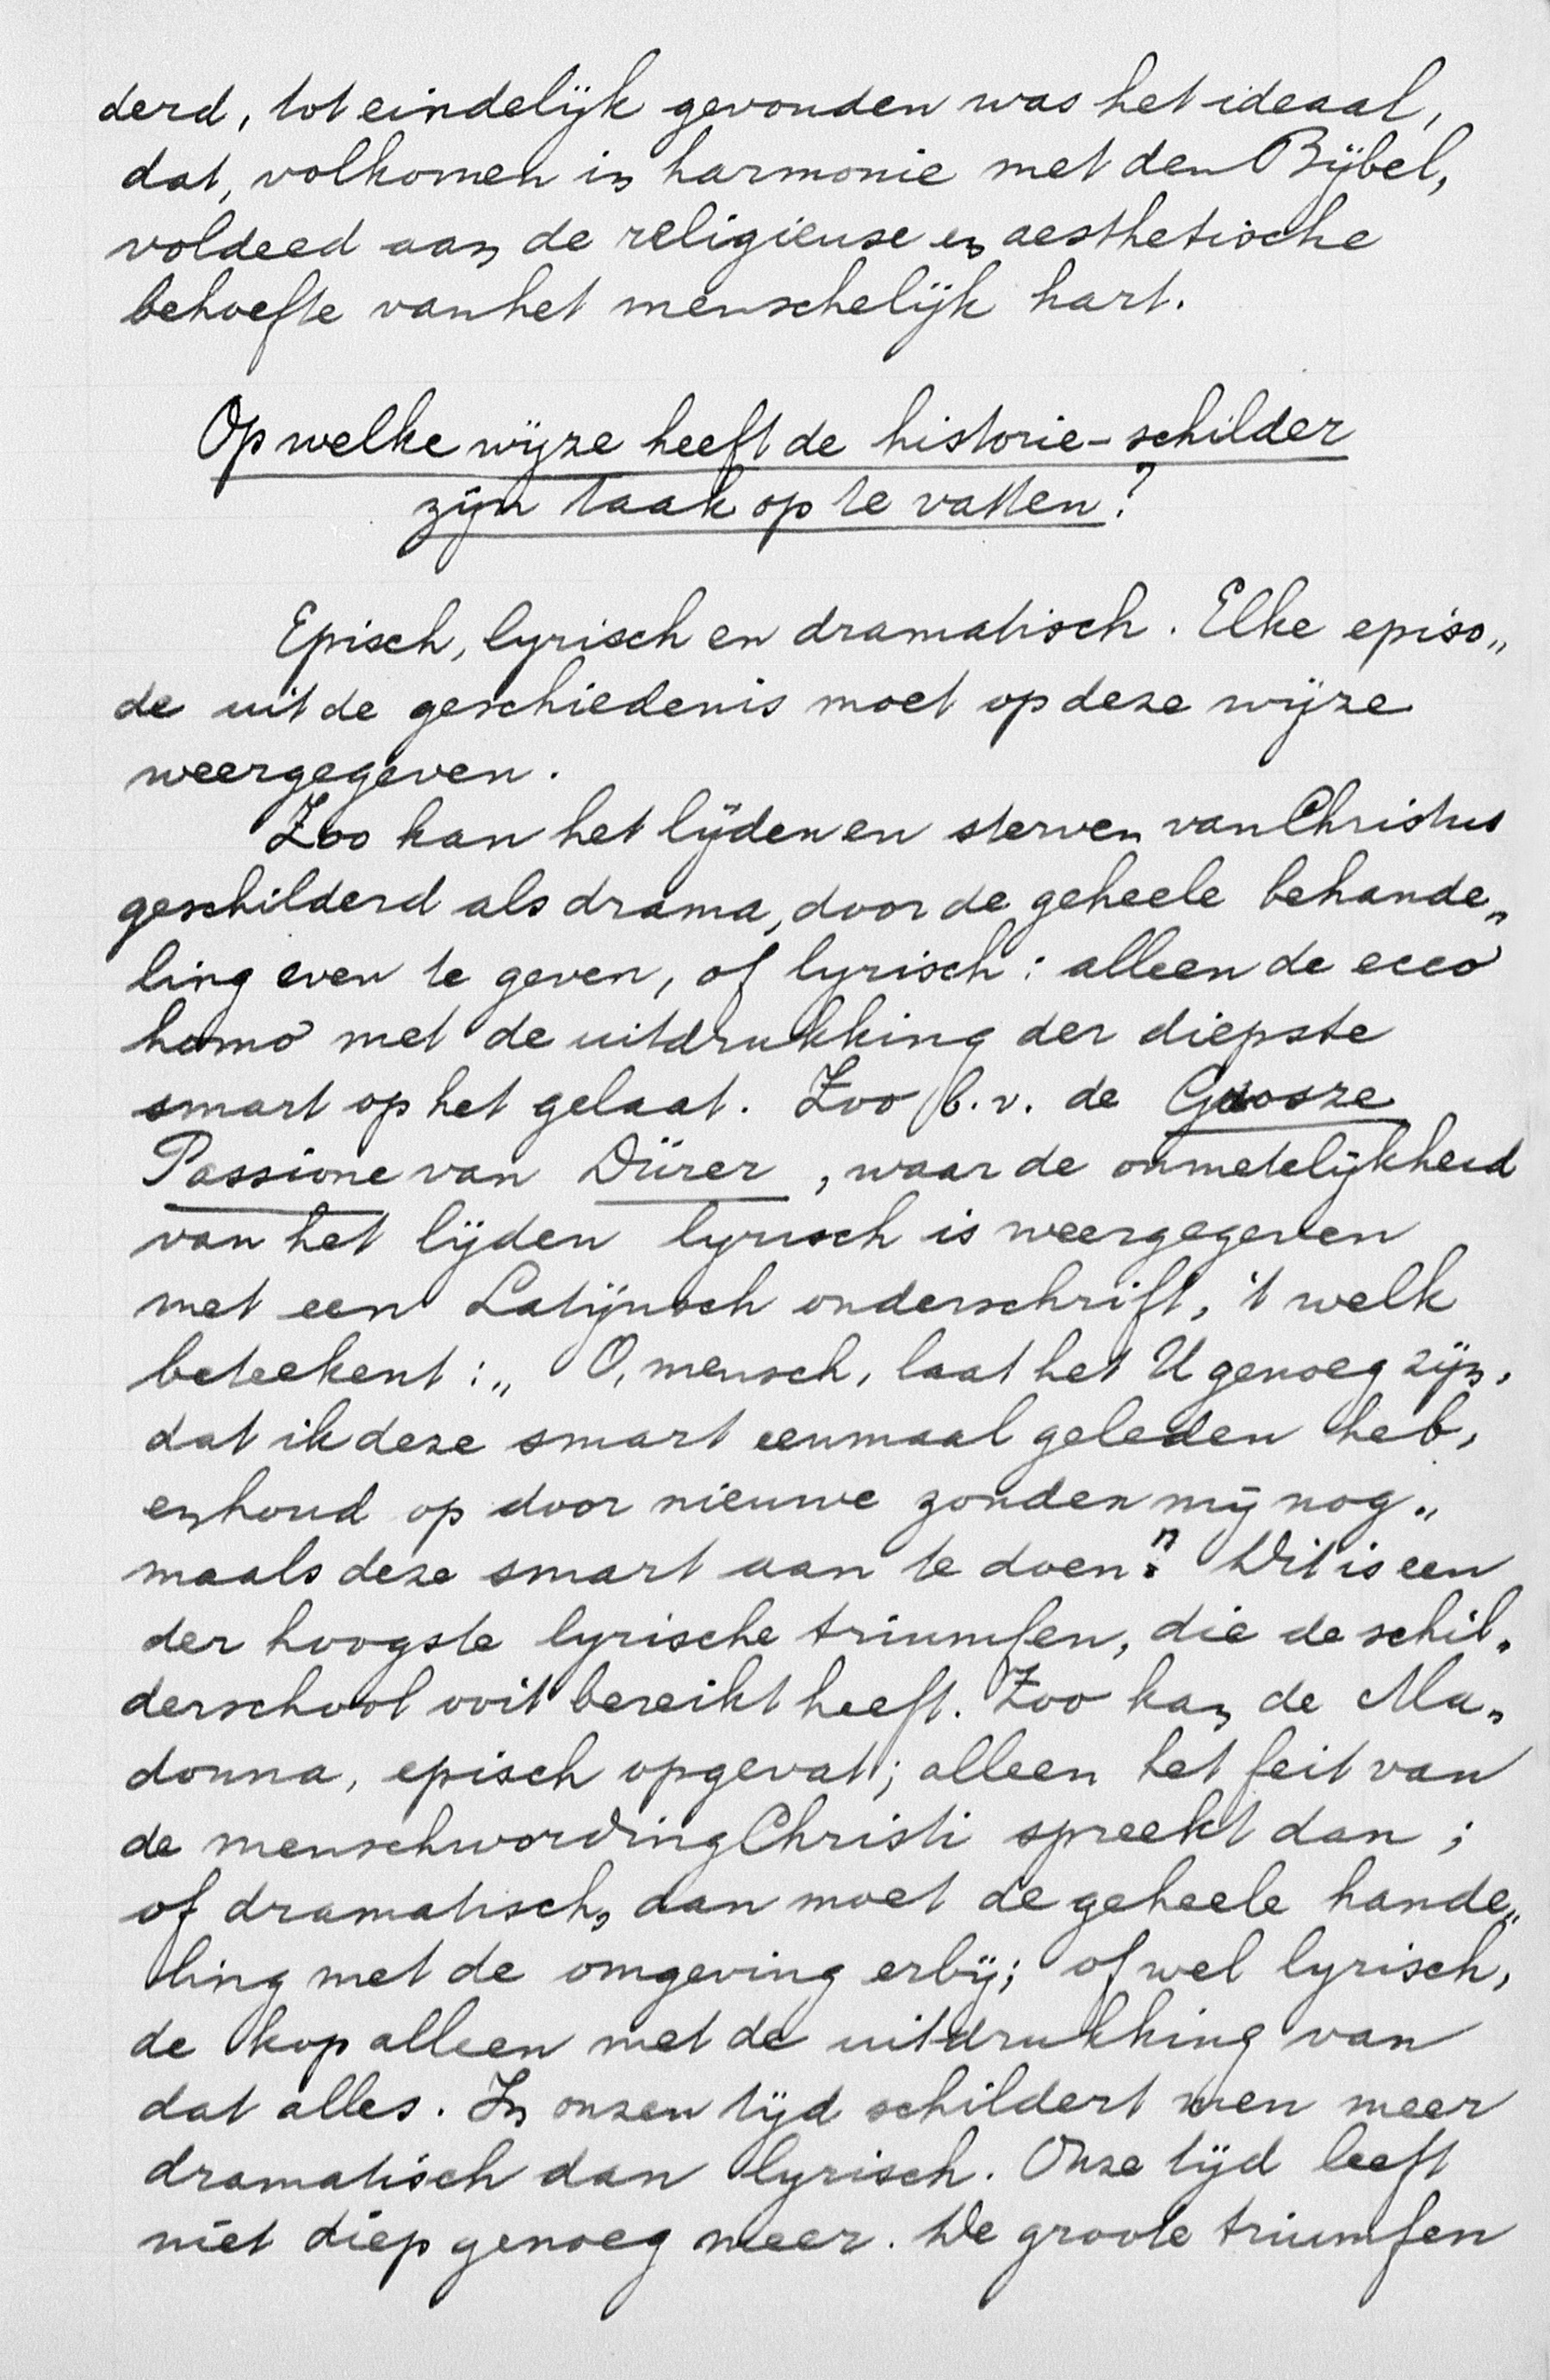 derd, tot eindelijk gevonden was het ideaal,
dat, volkomen in harmonie met den Bijbel,
voldeed aan de religieuse en aesthetische
behoefte van het menschelijk hart.
Op welke wijze heeft de historie-schilder
zijn taak op te vatten?
Episch, lyrisch en dramatisch. Elke episo„
de uit de geschiedenis moet op deze wijze
weergegeven.
Zoo kan het lijden en sterven van Christus
geschilderd als drama, door de geheele behande„
ling even te geven, of lyrisch: alleen de ecce
homo met de uitdrukking der diepste
smart op het gelaat. Zoo b.v. de Grosze
Passione van Dürer, waar de onmetelijkheid
van het lijden lyrisch is weergegeven
met een Latijnsch onderschrift, 't welk
beteekent: „O, mensch, laat het U genoeg zijn,
dat ik deze smart eenmaal geleden heb,
en houd op door nieuwe zonden mij nog„
maals deze smart aan te doen." Dit is een
der hoogste lyrische triumfen, die de schil„
derschool ooit bereikt heeft. Zoo kan de Ma„
donna, episch opgevat; alleen het feit van
de menschwording Christi spreekt dan;
of dramatisch, dan moet de geheele hande„
ling met de omgeving erbij; of wel lyrisch,
de kop alleen met de uitdrukking van
dat alles. In onzen tijd schildert men meer
dramatisch dan lyrisch. Onze tijd leeft
niet diep genoeg meer. De groote triumfen